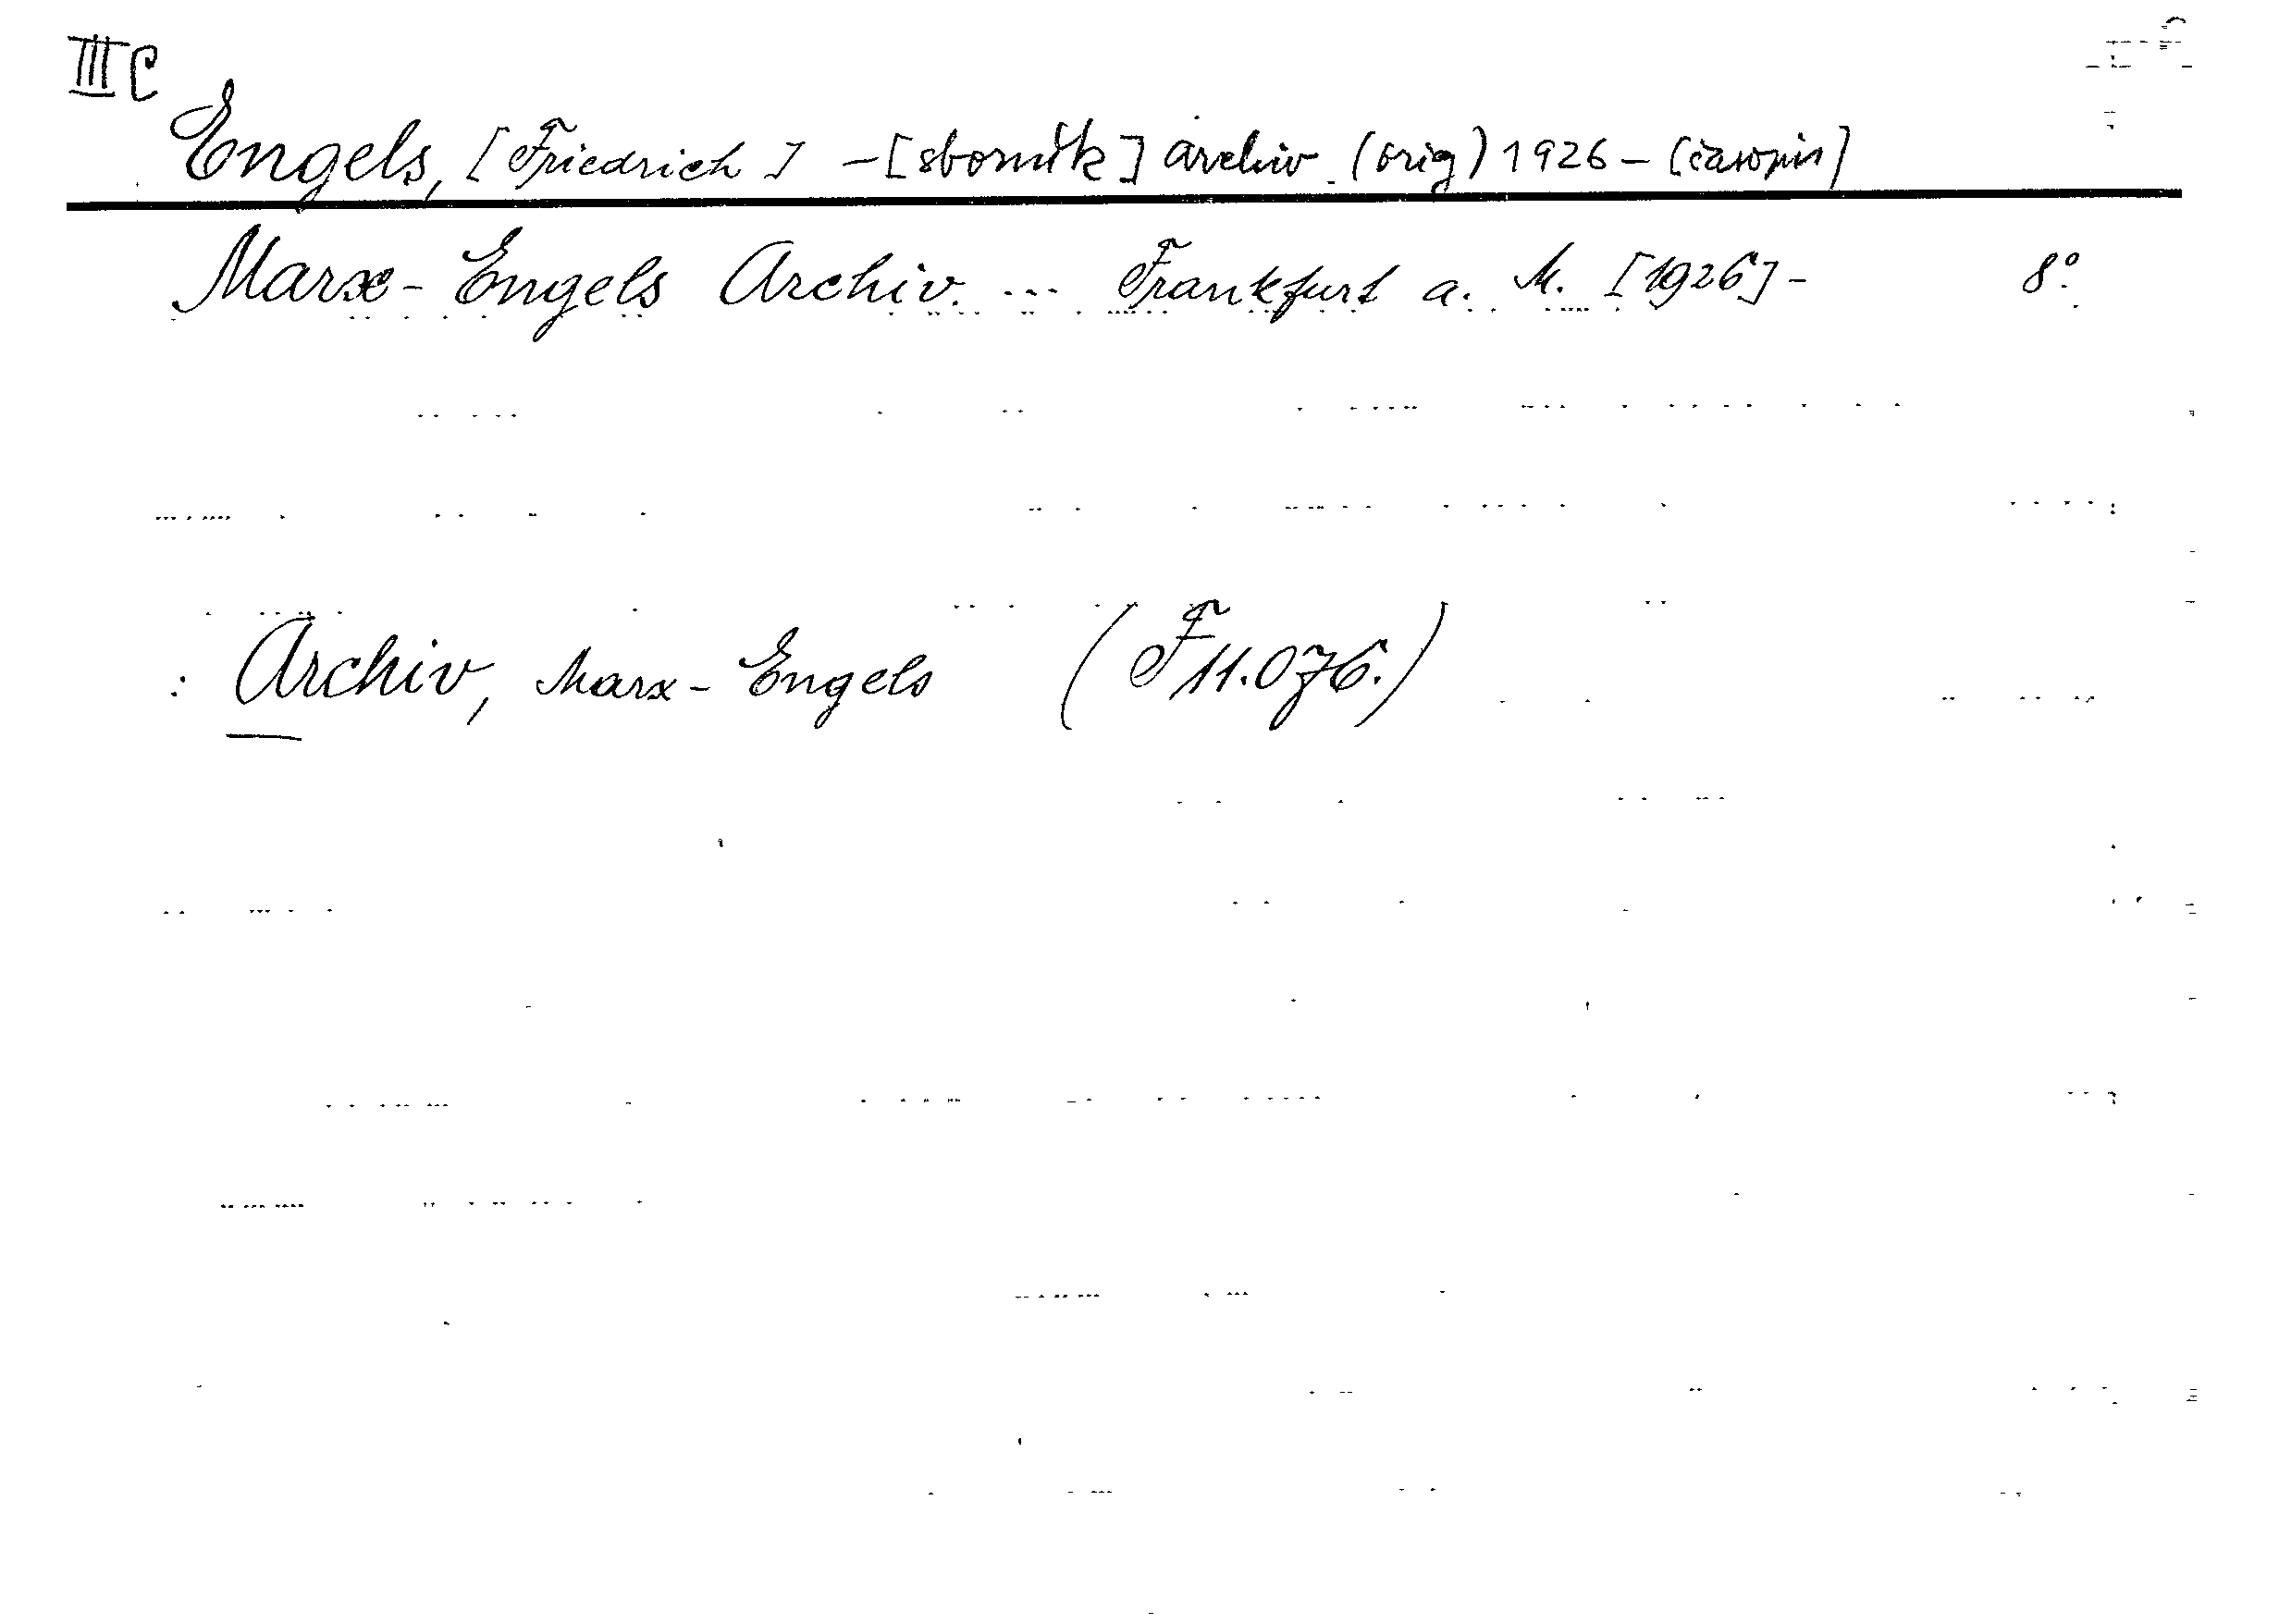 III C
Engels, [Friedrich] - [sborník] archiv (orig) 1926 - [časopis]
Marx - Engels Archiv. ... Frankfurt a. M. [1926] - 8°.
: Archiv, Marx - Engels (F 11.076.)